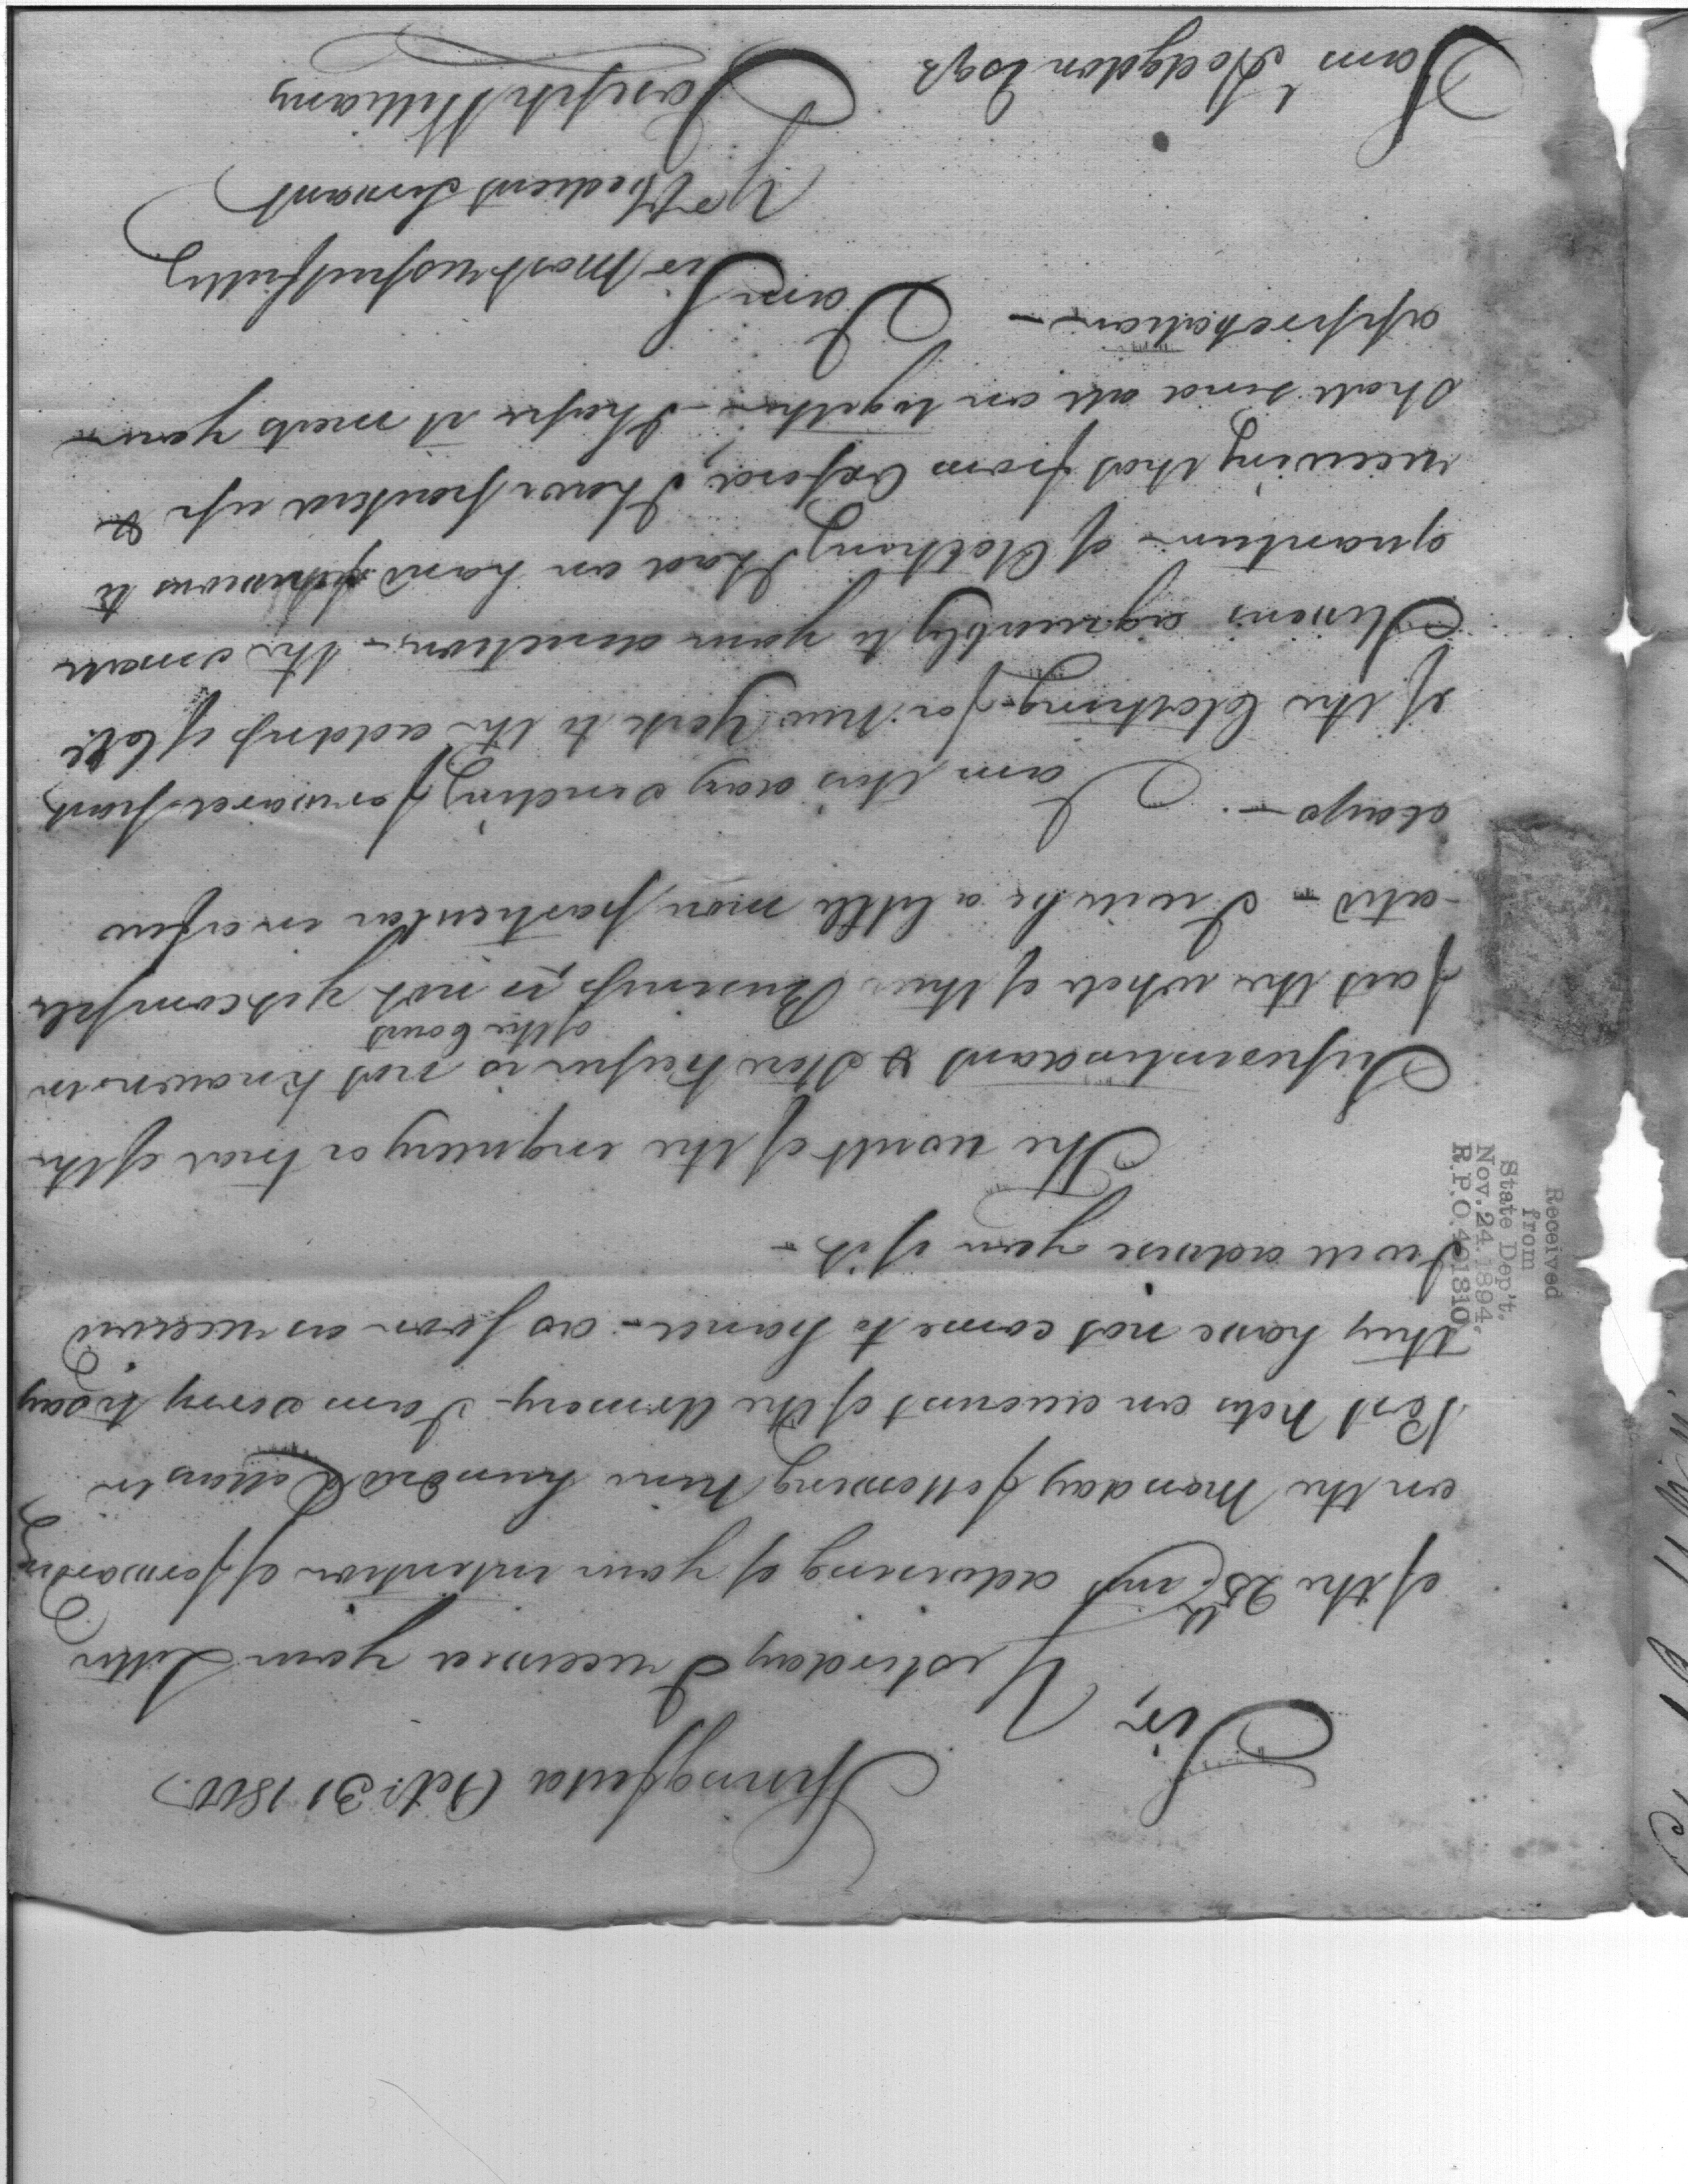 Springfield Octr. 31 1800.
Sir,
Yesterday I received your Letter
of the 25th inst advising of your intention of forwarding
on the Monday following Nine hundred Dollars in
Post Notes on account of the Armory - I am sorry to say
they have not come to hand - as soon as received
I will advise you of it -
The result of the enquiry or trial of the
Superintendant & Store Keeper is not known in
of the Court
fact the whole of the Business, is not yet comple
-ated - I will be a little more particular in a few
days -
I am this day sending forward part,
of the Clothing for New York to the address of Coll.
Stevens agreeably to your direction - the small
quantum of Clothing I had on hand previous to
receiving that from Oxford, I have packed up &
shall send all on together - I hope it meets your
approbation -
I am Sir most respectfully
Yr. Obedient Servant
Joseph Williams
Saml. Hodgdon Esqr.
Received
from
State Dep't.
Nov. 24, 1894,
R.P.O. 401810